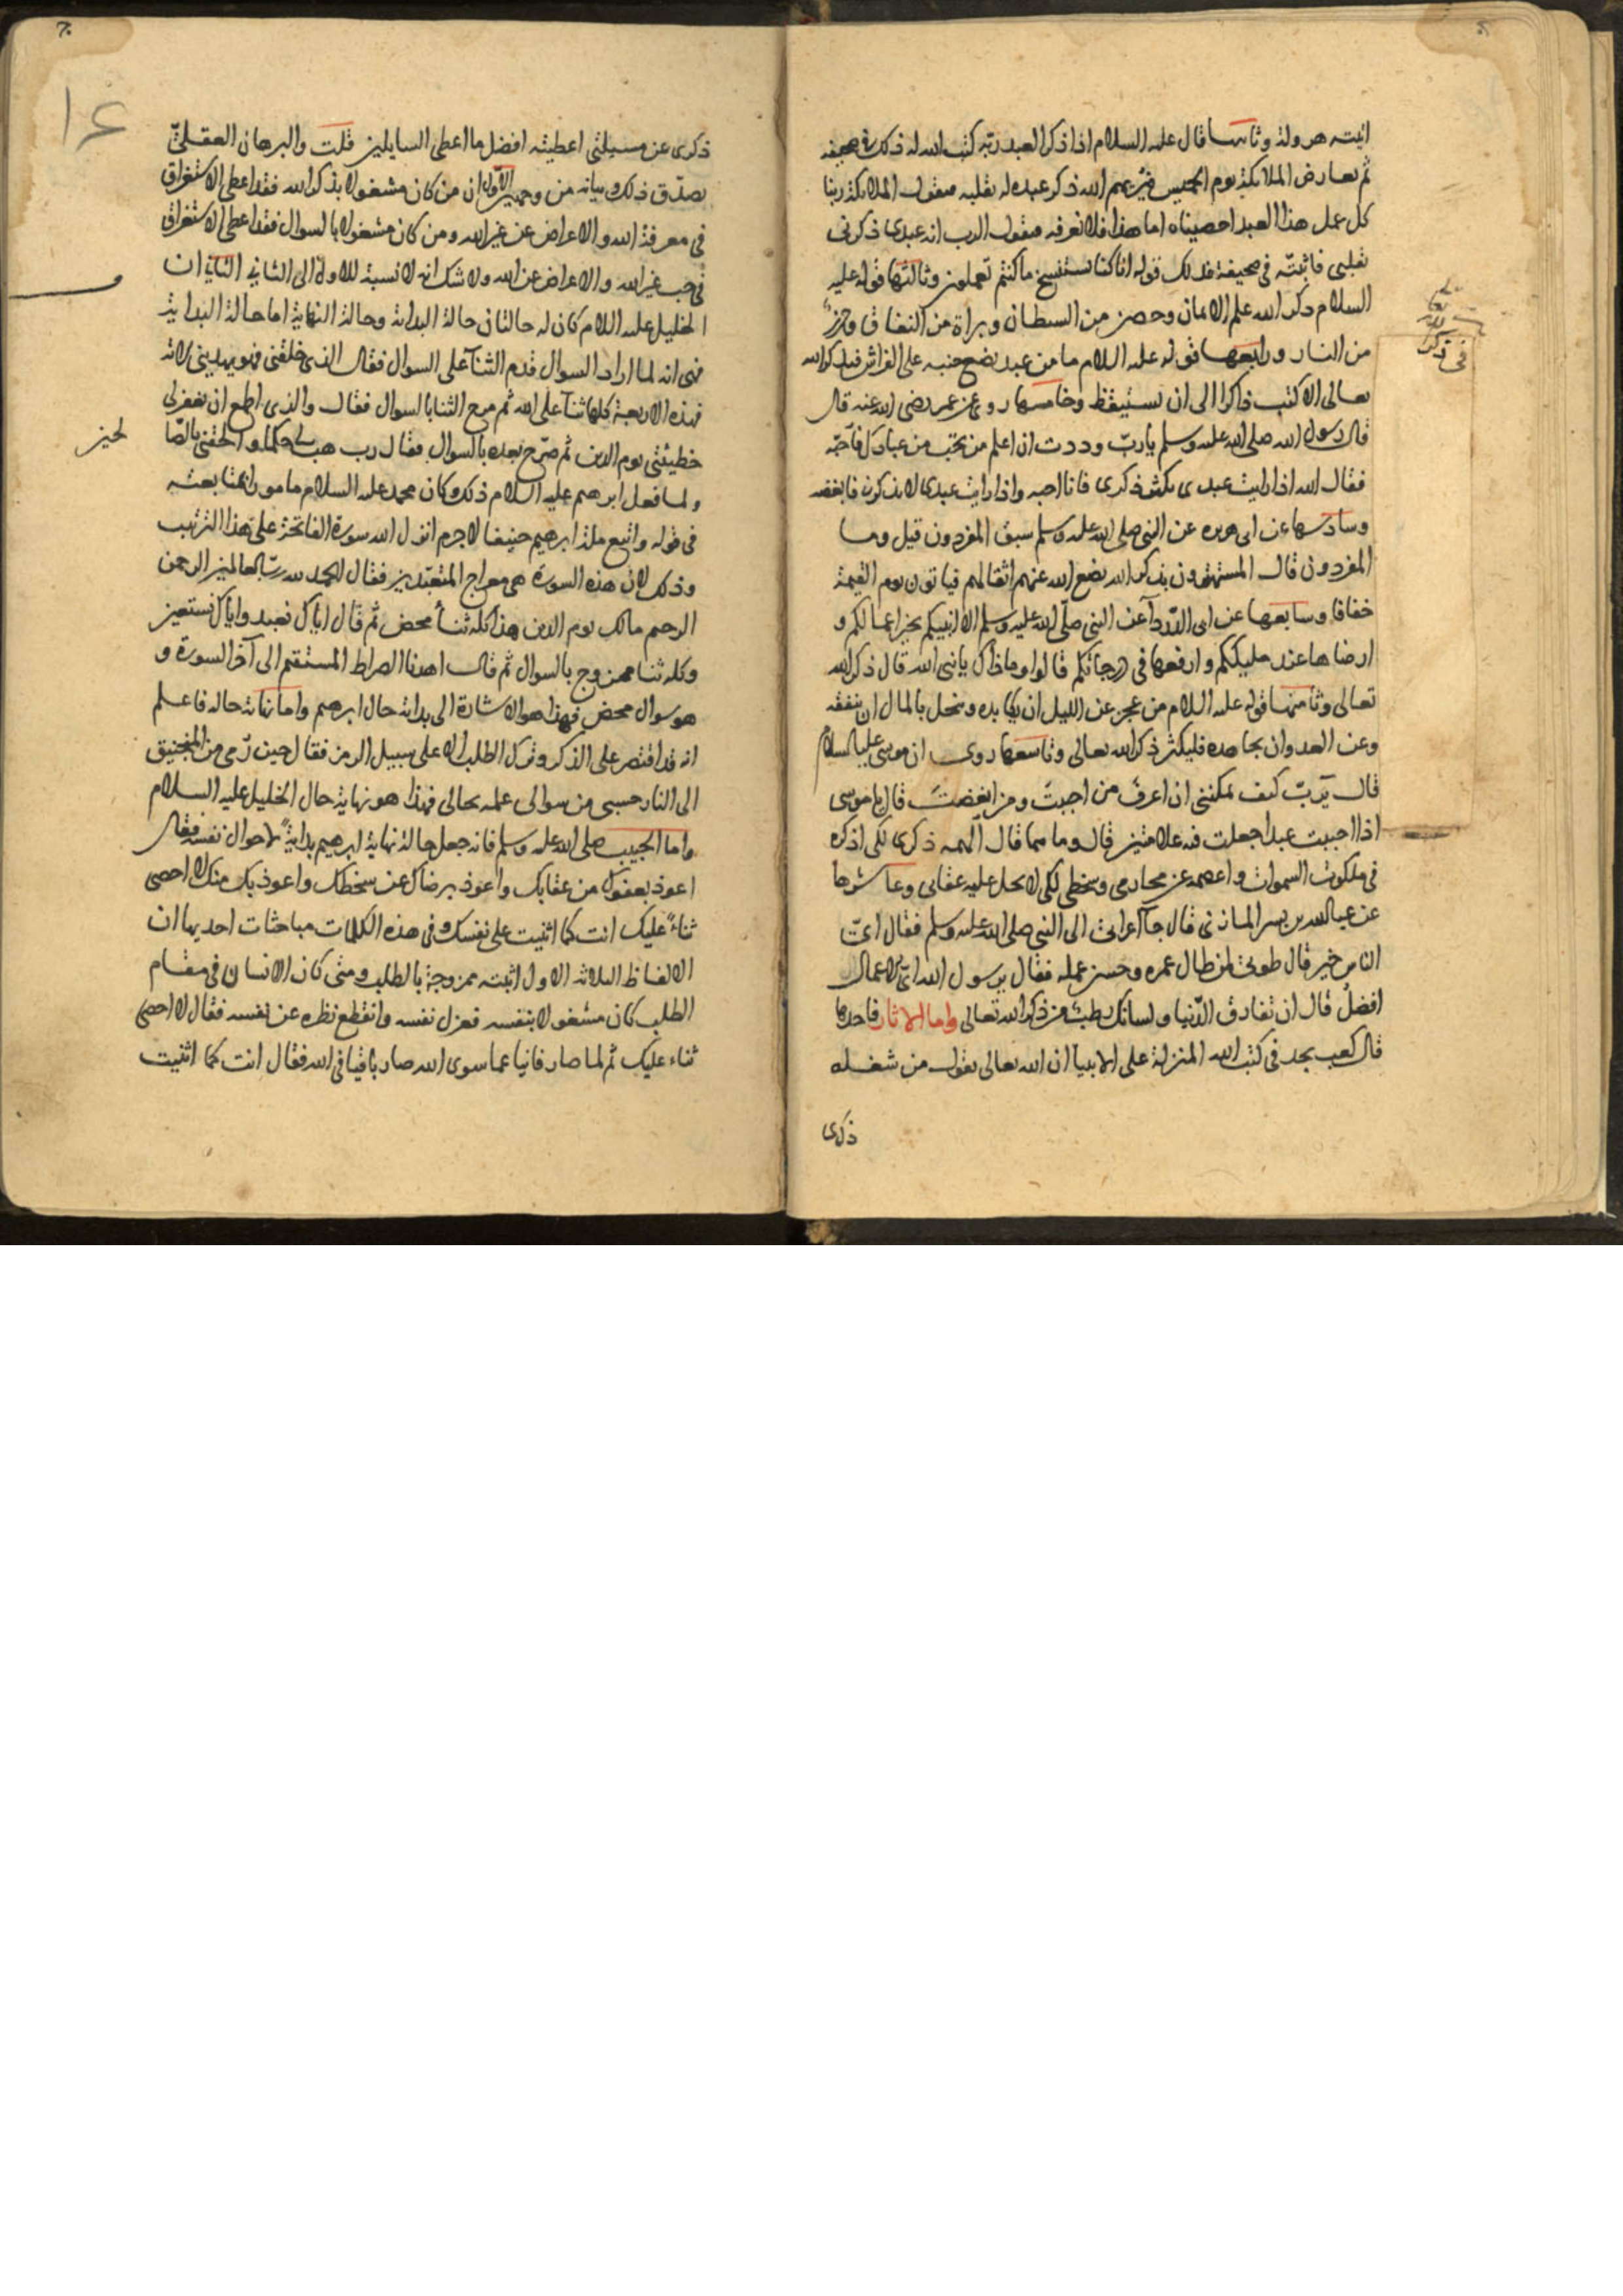 اتيته هرولة وثانيها قال عليه السلام اذا ذكر العبد ربه كتب الله له ذلك في صحيفه
ثم يعارض الملائكة يوم الخميس فيريهم الله ذكر عبده له بقلبه فيقول الملائكة ربنا
كل عمل هذا العبد احصيناه اما هذا فلا نعرفه فيقول الرب انه عبدى ذكرنى
بقلبى فاثبته فى صحيفة فذلك قوله انا كنا نستنسخ ما كنتم تعملون وثالثها قوله عليه
السلام ذكر الله علم الايمان وحصن من الشيطان وبراة من النفاق وحرز
من النار ورابعها قوله عليه السلام ما من عبد يضع جنبه على الفراش فيذكر الله
تعالى الا كتب ذاكرا الى ان يستيقظ وخامسها روى عن عمر رضى الله عنه قال
قال رسول الله صلى الله عليه وسلم يا ربّ وددت ان اعلم من تحب من عبادك فاحبّه
فقال الله اذا رايت عبدى يكثر ذكرى فانا احبه واذا رايت عبدى لا يذكرنى فابغضه
وسادسها عن ابى هريره عن النبى صلى الله عليه وسلم سبق المفردون قيل وما
المفردون قال المستهترون بذكر الله يضع الله عنهم اثقالهم فياتون يوم القيمة
خفافا وسابعها عن ابى الدّرداء عن النبى صلّى الله عليه وسلم الا انبيكم بخير اعمالكم و
ارضاها عند مليككم وارفعها فى درجاتكم قالوا وما ذاك يا نبى الله قال ذكر الله
تعالى وثامنها قوله عليه السلام من عجز عن الليل ان يكابده وبخل بالمال ان ينفقه
وعن العدو ان يجاهده فليكثر ذكر الله تعالى وتاسعها روى ان موسى عليه السلام
قال يَربّ كيف يمكننى ان اعرف من احببتَ ومن ابغضتَ قال يا موسى
اذا احببت عبدا جعلت فيه علامتين قال وما هما قال الهمه ذكرى لكى اذكره
فى ملكوت السموات واعصمه عن محارمى وسخطى لكى لا يحل عليه عقابى وعاشرها
عن عبد الله بن بسر المازنى قال جاء اعرابى الى النبى صلى الله عليه وسلم فقال اىّ
الناس خير قال طوبى لمن طال عمره وحسن عمله فقال يرسول الله اىّ الاعمال
افضلُ قال ان تفارق الدّنيا ولسانك رطب من ذكر الله تعالى واما الاثار فاحدها
قال كعب نجد فى كتب الله المنزلة على الانبياء ان الله تعالى يقول من شغله
ذكرى
فى ذكر
١٤
ذكرى عن مسيلتى اعطيته افضل ما اعطى السايلين قلت والبرهان العقلىّ
يصدّق ذلك وبيانه من وجهين الاول ان من كان مشغولا بذكر الله فقد اعطى الاستغراق
فى معرفة الله والاعراض عن غير الله ومن كان مشغولا بالسوال فقد اعطى الاستغراق
فى حب غير الله والاعراض عن الله ولا شك انه لا نسبة للاول الى الثانى الثانى ان
الخليل عليه السلام كان له حالتان حالة البداية وحالة النهاية اما حالة البداية
فهى انه لما اراد السوال قدم الثناء على السوال فقال الذى خلقنى فهو يهدينى الاية
فهذه الاربعة كلها ثناء على الله ثم مزج الثنا بالسوال فقال والذى اطمع ان يغفر لى
خطيئتى يوم الدين ثم صرّح بعده بالسوال فقال رب هب لى حكما والحقنى بالصّا
لحين
ولما فعل ابرهيم عليه السلام ذلك وكان محمد عليه السلام مامورا بمتابعته
فى قوله واتبع ملة ابرهيم حنيفا لا جرم انزل الله سورة الفاتحة على هذا الترتيب
وذلك لان هذه السورة هى معراج المتعبّدين فقال الحمد لله ربّ العالمين الرحمن
الرحيم مالك يوم الدين هذا كله ثناء محض ثم قال اياك نعبد واياك نستعين
وكله ثنا ممزوج بالسوال ثم قال اهدنا الصراط المستقيم الى آخر السورة و
هو سوال محض فهذا هو الاشارة الى بداية حال ابرهيم واما نهاية حاله فاعلم
انه قد اقتصر على الذكر وترك الطلب الا على سبيل الرمز فقال حين رُمى من المنجنيق
الى النار حسبى من سوالى علمه بحالى فهذا هو نهاية حال الخليل عليه السلام
واما الحبيب صلى الله عليه وسلم فانه جعل حالة نهاية ابرهيم بدايةً لاحوال نفسه فقال
اعوذ بعفوك من عقابك واعوذ برضاك عن سخطك واعوذ بك منك لا احصى
ثناءً عليك انت كما اثنيت على نفسك وفى هذه الكلمات مباحثات احديها ان
الالفاظ الثلاثه الاول اتيته ممزوجة بالطلب ومتى كان الانسان فى مقام
الطلب كان مشغولا بنفسه فعزل نفسه وانقطع نظره عن نفسه فقال لا احصى
ثناء عليك ثم لما صار فانيا عما سوى الله صار باقيا فى الله فقال انت كما اثنيت